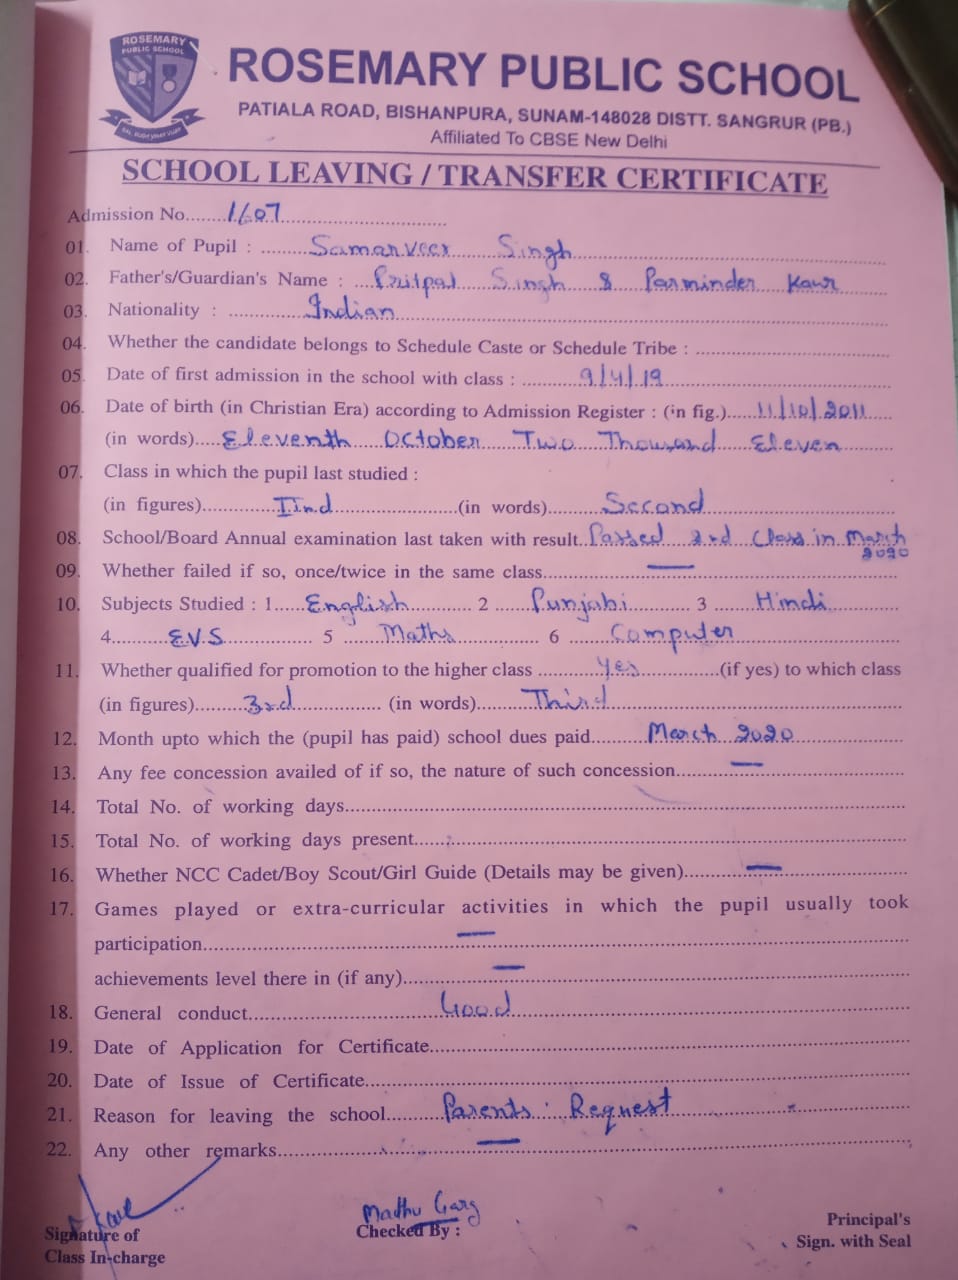 ROSEMARY
PUBLIC SCHOOL
ROSEMARY PUBLIC SCHOOL
PATIALA ROAD, BISHANPURA, SUNAM-148028 DISTT. SANGRUR (PB.)
Affiliated To CBSE New Delhi
SCHOOL LEAVING / TRANSFER CERTIFICATE
Admission No.......1607
01. Name of Pupil : ........Samarveer Singh
02. Father's/Guardian's Name : ....Pritpal Singh & Parminder Kaur
03. Nationality : ............Indian
04. Whether the candidate belongs to Schedule Caste or Schedule Tribe : ........
05. Date of first admission in the school with class : ..........9/4/19
06. Date of birth (in Christian Era) according to Admission Register : (in fig.).....11/10/2011
(in words)....Eleventh October Two Thousand Eleven
07. Class in which the pupil last studied :
(in figures)............IInd............(in words)..........Second
08. School/Board Annual examination last taken with result..Passed 2nd Class in March
2020
09. Whether failed if so, once/twice in the same class............—
10. Subjects Studied : 1.....English............ 2 ......Punjabi............ 3 .......Hindi
4..........EVS............ 5 .......Maths............ 6 ........Computer
11. Whether qualified for promotion to the higher class ..........Yes............(if yes) to which class
(in figures).........3rd............ (in words)........Third
12. Month upto which the (pupil has paid) school dues paid..........March 2020
13. Any fee concession availed of if so, the nature of such concession..........—
14. Total No. of working days............
15. Total No. of working days present............
16. Whether NCC Cadet/Boy Scout/Girl Guide (Details may be given)..........—
17. Games played or extra-curricular activities in which the pupil usually took
participation............—
achievements level there in (if any)............—
18. General conduct............Good
19. Date of Application for Certificate............
20. Date of Issue of Certificate............
21. Reason for leaving the school.........Parents Request
22. Any other remarks............—
Kaur
Madhu Garg
Signature of
Class In-charge
Checked By :
Principal's
Sign. with Seal